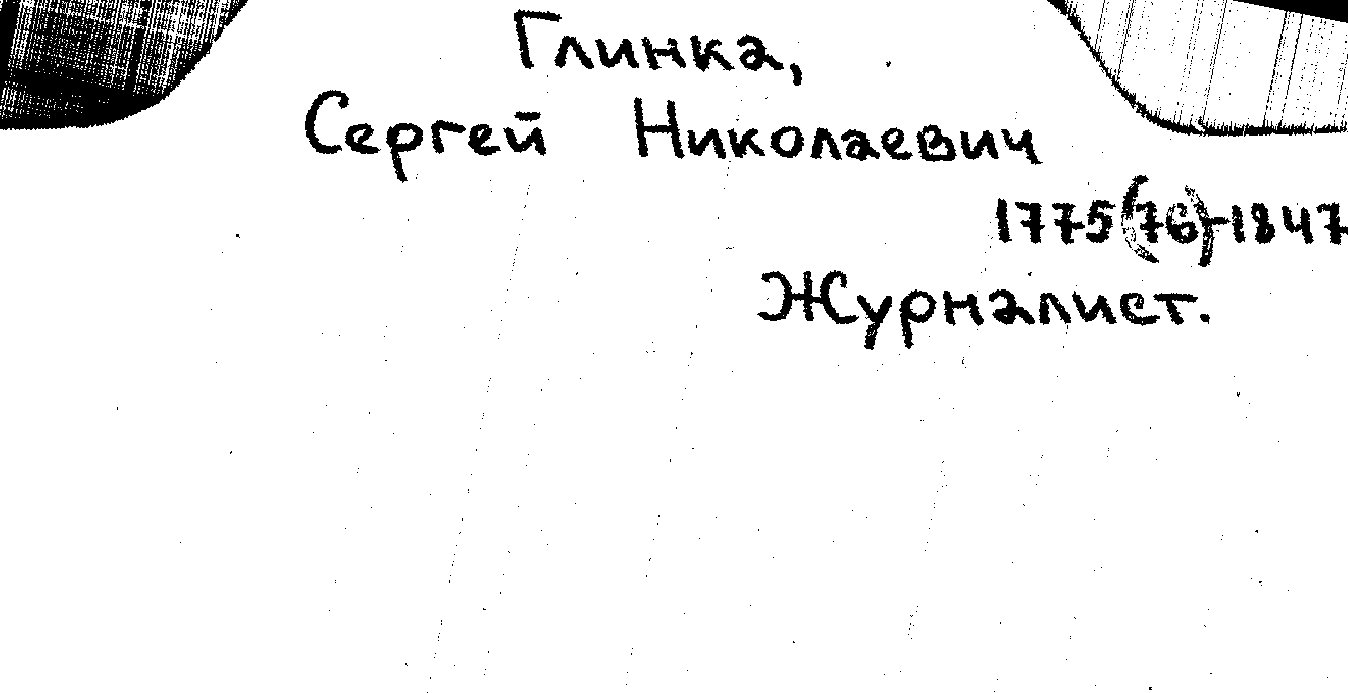 Глинка,
Сергей Николаевич
1775(76)-1847
Журналист.